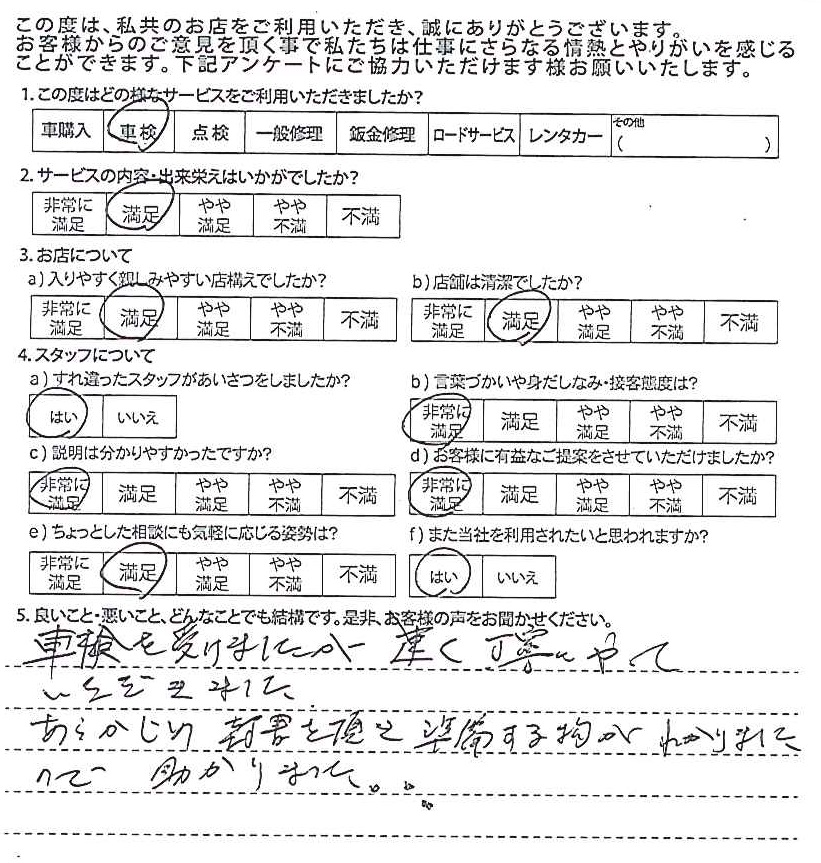 この度は、私共のお店をご利用いただき、誠にありがとうございます。
お客様からのご意見を頂く事で私たちは仕事にさらなる情熱とやりがいを感じる
ことができます。下記アンケートにご協力いただけます様お願いいたします。
1.この度はどの様なサービスをご利用いただきましたか?
車購入 車検 点検 一般修理 鈑金修理 ロードサービス レンタカー その他 ( )
2.サービスの内容・出来栄えはいかがでしたか?
非常に満足 満足 やや満足 やや不満 不満
3.お店について
a)入りやすく親しみやすい店構えでしたか? b)店舗は清潔でしたか?
非常に満足 満足 やや満足 やや不満 不満 非常に満足 満足 やや満足 やや不満 不満
4.スタッフについて
a)すれ違ったスタッフがあいさつをしましたか? b)言葉づかいや身だしなみ・接客態度は?
はい いいえ 非常に満足 満足 やや満足 やや不満 不満
c)説明は分かりやすかったですか? d)お客様に有益なご提案をさせていただけましたか?
非常に満足 満足 やや満足 やや不満 不満 非常に満足 満足 やや満足 やや不満 不満
e)ちょっとした相談にも気軽に応じる姿勢は? f)また当社を利用されたいと思われますか?
非常に満足 満足 やや満足 やや不満 不満 はい いいえ
5.良いこと・悪いこと、どんなことでも結構です。是非、お客様の声をお聞かせください。
車検を受けましたが 速く丁寧にやって
いただきました
あらかじめ 封書を頂き 準備する物が わかりました
ので 助かりました。